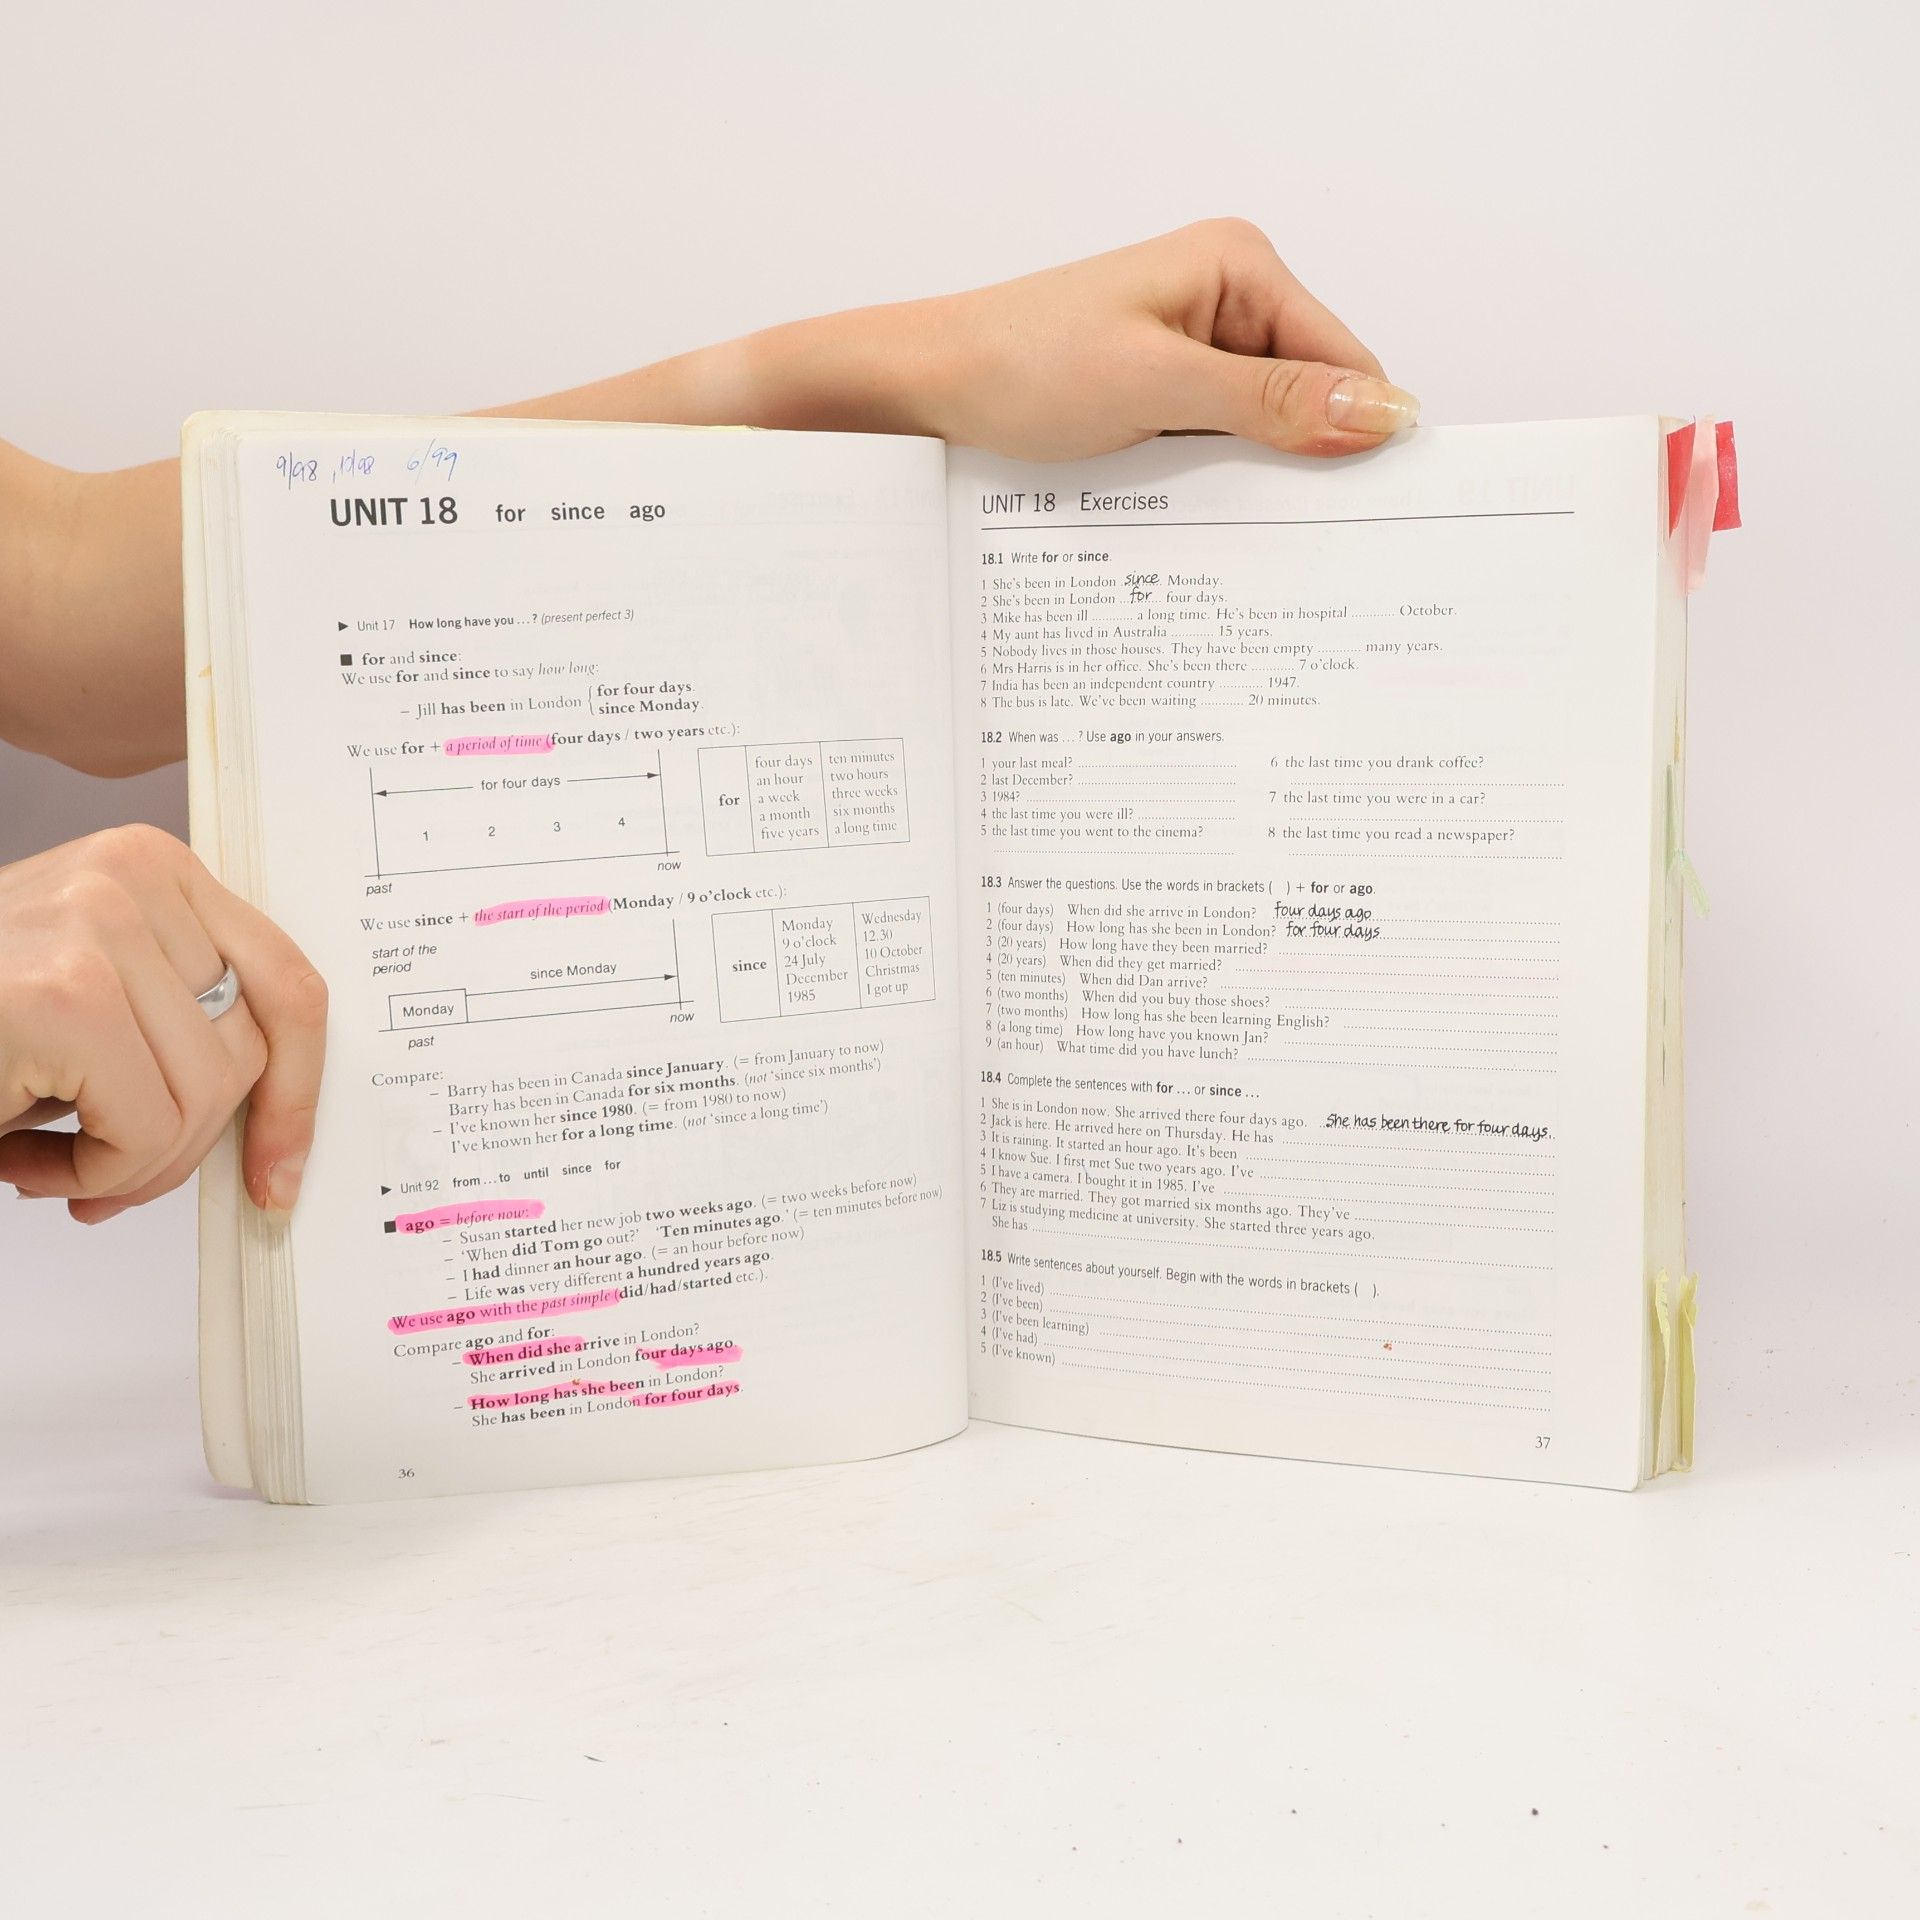 9/98, 10/98 6/99
UNIT 18 for since ago
▶ Unit 17 How long have you ...? (present perfect 3)
■ for and since:
We use for and since to say how long:
– Jill has been in London { for four days.
since Monday.
We use for + a period of time (four days / two years etc.):
for four days
1 2 3 4
past
now
for
four days ten minutes
an hour two hours
a week three weeks
a month six months
five years a long time
We use since + the start of the period (Monday / 9 o'clock etc.):
start of the
period
since Monday
Monday
past
now
since
Monday Wednesday
9 o'clock 12.30
24 July 10 October
December Christmas
1985 I got up
Compare:
– Barry has been in Canada since January. (= from January to now)
Barry has been in Canada for six months. (not 'since six months')
– I've known her since 1980. (= from 1980 to now)
I've known her for a long time. (not 'since a long time')
▶ Unit 92 from ... to until since for
■ ago = before now:
– Susan started her new job two weeks ago. (= two weeks before now)
– 'When did Tom go out?' 'Ten minutes ago.' (= ten minutes before now)
– I had dinner an hour ago. (= an hour before now)
– Life was very different a hundred years ago.
We use ago with the past simple (did/had/started etc.).
Compare ago and for:
– When did she arrive in London?
She arrived in London four days ago.
– How long has she been in London?
She has been in London for four days.
36
UNIT 18 Exercises
18.1 Write for or since.
1 She's been in London ..since.. Monday.
2 She's been in London ..for.... four days.
3 Mike has been ill ............ a long time. He's been in hospital ............ October.
4 My aunt has lived in Australia ............ 15 years.
5 Nobody lives in those houses. They have been empty ............ many years.
6 Mrs Harris is in her office. She's been there ............ 7 o'clock.
7 India has been an independent country ............ 1947.
8 The bus is late. We've been waiting ............ 20 minutes.
18.2 When was ...? Use ago in your answers.
1 your last meal? ............
2 last December? ............
3 1984? ............
4 the last time you were ill? ............
5 the last time you went to the cinema?
............
6 the last time you drank coffee?
............
7 the last time you were in a car?
............
8 the last time you read a newspaper?
............
18.3 Answer the questions. Use the words in brackets ( ) + for or ago.
1 (four days) When did she arrive in London? four days ago............
2 (four days) How long has she been in London? for four days............
3 (20 years) How long have they been married? ............
4 (20 years) When did they get married? ............
5 (ten minutes) When did Dan arrive? ............
6 (two months) When did you buy those shoes? ............
7 (two months) How long has she been learning English? ............
8 (a long time) How long have you known Jan? ............
9 (an hour) What time did you have lunch? ............
18.4 Complete the sentences with for ... or since ...
1 She is in London now. She arrived there four days ago. ..She has been there for four days...
2 Jack is here. He arrived here on Thursday. He has ............
3 It is raining. It started an hour ago. It's been ............
4 I know Sue. I first met Sue two years ago. I've ............
5 I have a camera. I bought it in 1985. I've ............
6 They are married. They got married six months ago. They've ............
7 Liz is studying medicine at university. She started three years ago.
She has ............
18.5 Write sentences about yourself. Begin with the words in brackets ( ).
1 (I've lived) ............
2 (I've been) ............
3 (I've been learning) ............
4 (I've had) ............
5 (I've known) ............
37